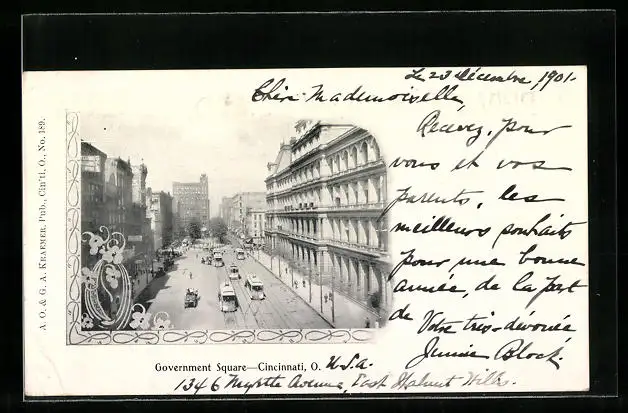 Le 23 décembre, 1901.
Chère Mademoiselle,
Recevez, pour
vous et vos
parents, les
meilleurs souhaits
pour une bonne
année, de la part
de
Votre très-dévouée
Jennie Block.
Government Square—Cincinnati, O. U.S.A.
1346 Myrtle Avenue, East Walnut Hills.
A. O. & G. A. KRAEMER, Pub., Cin'ti, O., No. 189.